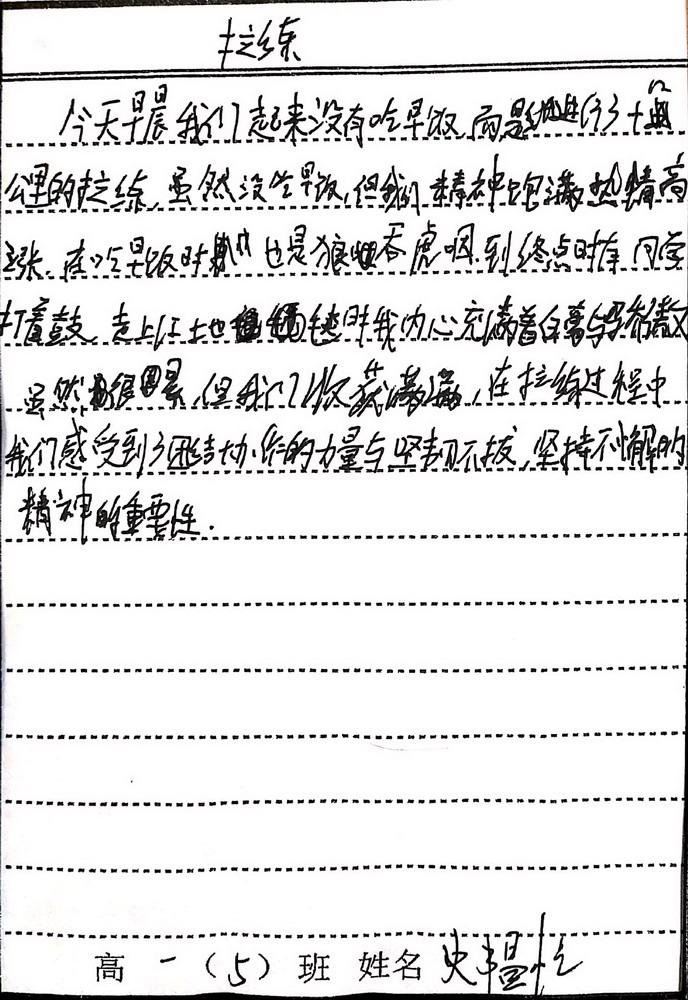 拉练
今天早晨我们起来没有吃早饭,而是进行了十八
公里的拉练,虽然没吃早饭,但我们精神饱满热情高
涨.在吃早饭时也是狼吞虎咽.到终点时有同学
打着鼓,走上红土地毯时我内心充满着自豪与
虽然很累,但我们收获满满,在拉练过程中
我们感受到了团结协作的力量与坚韧不拔,坚持不懈的
精神的重要性.
高一(5)班 姓名 史